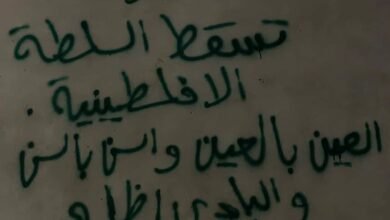 تسقط السلطة
الافلسطينية.
العين بالعين والسن بالسن
والبادي اظلم